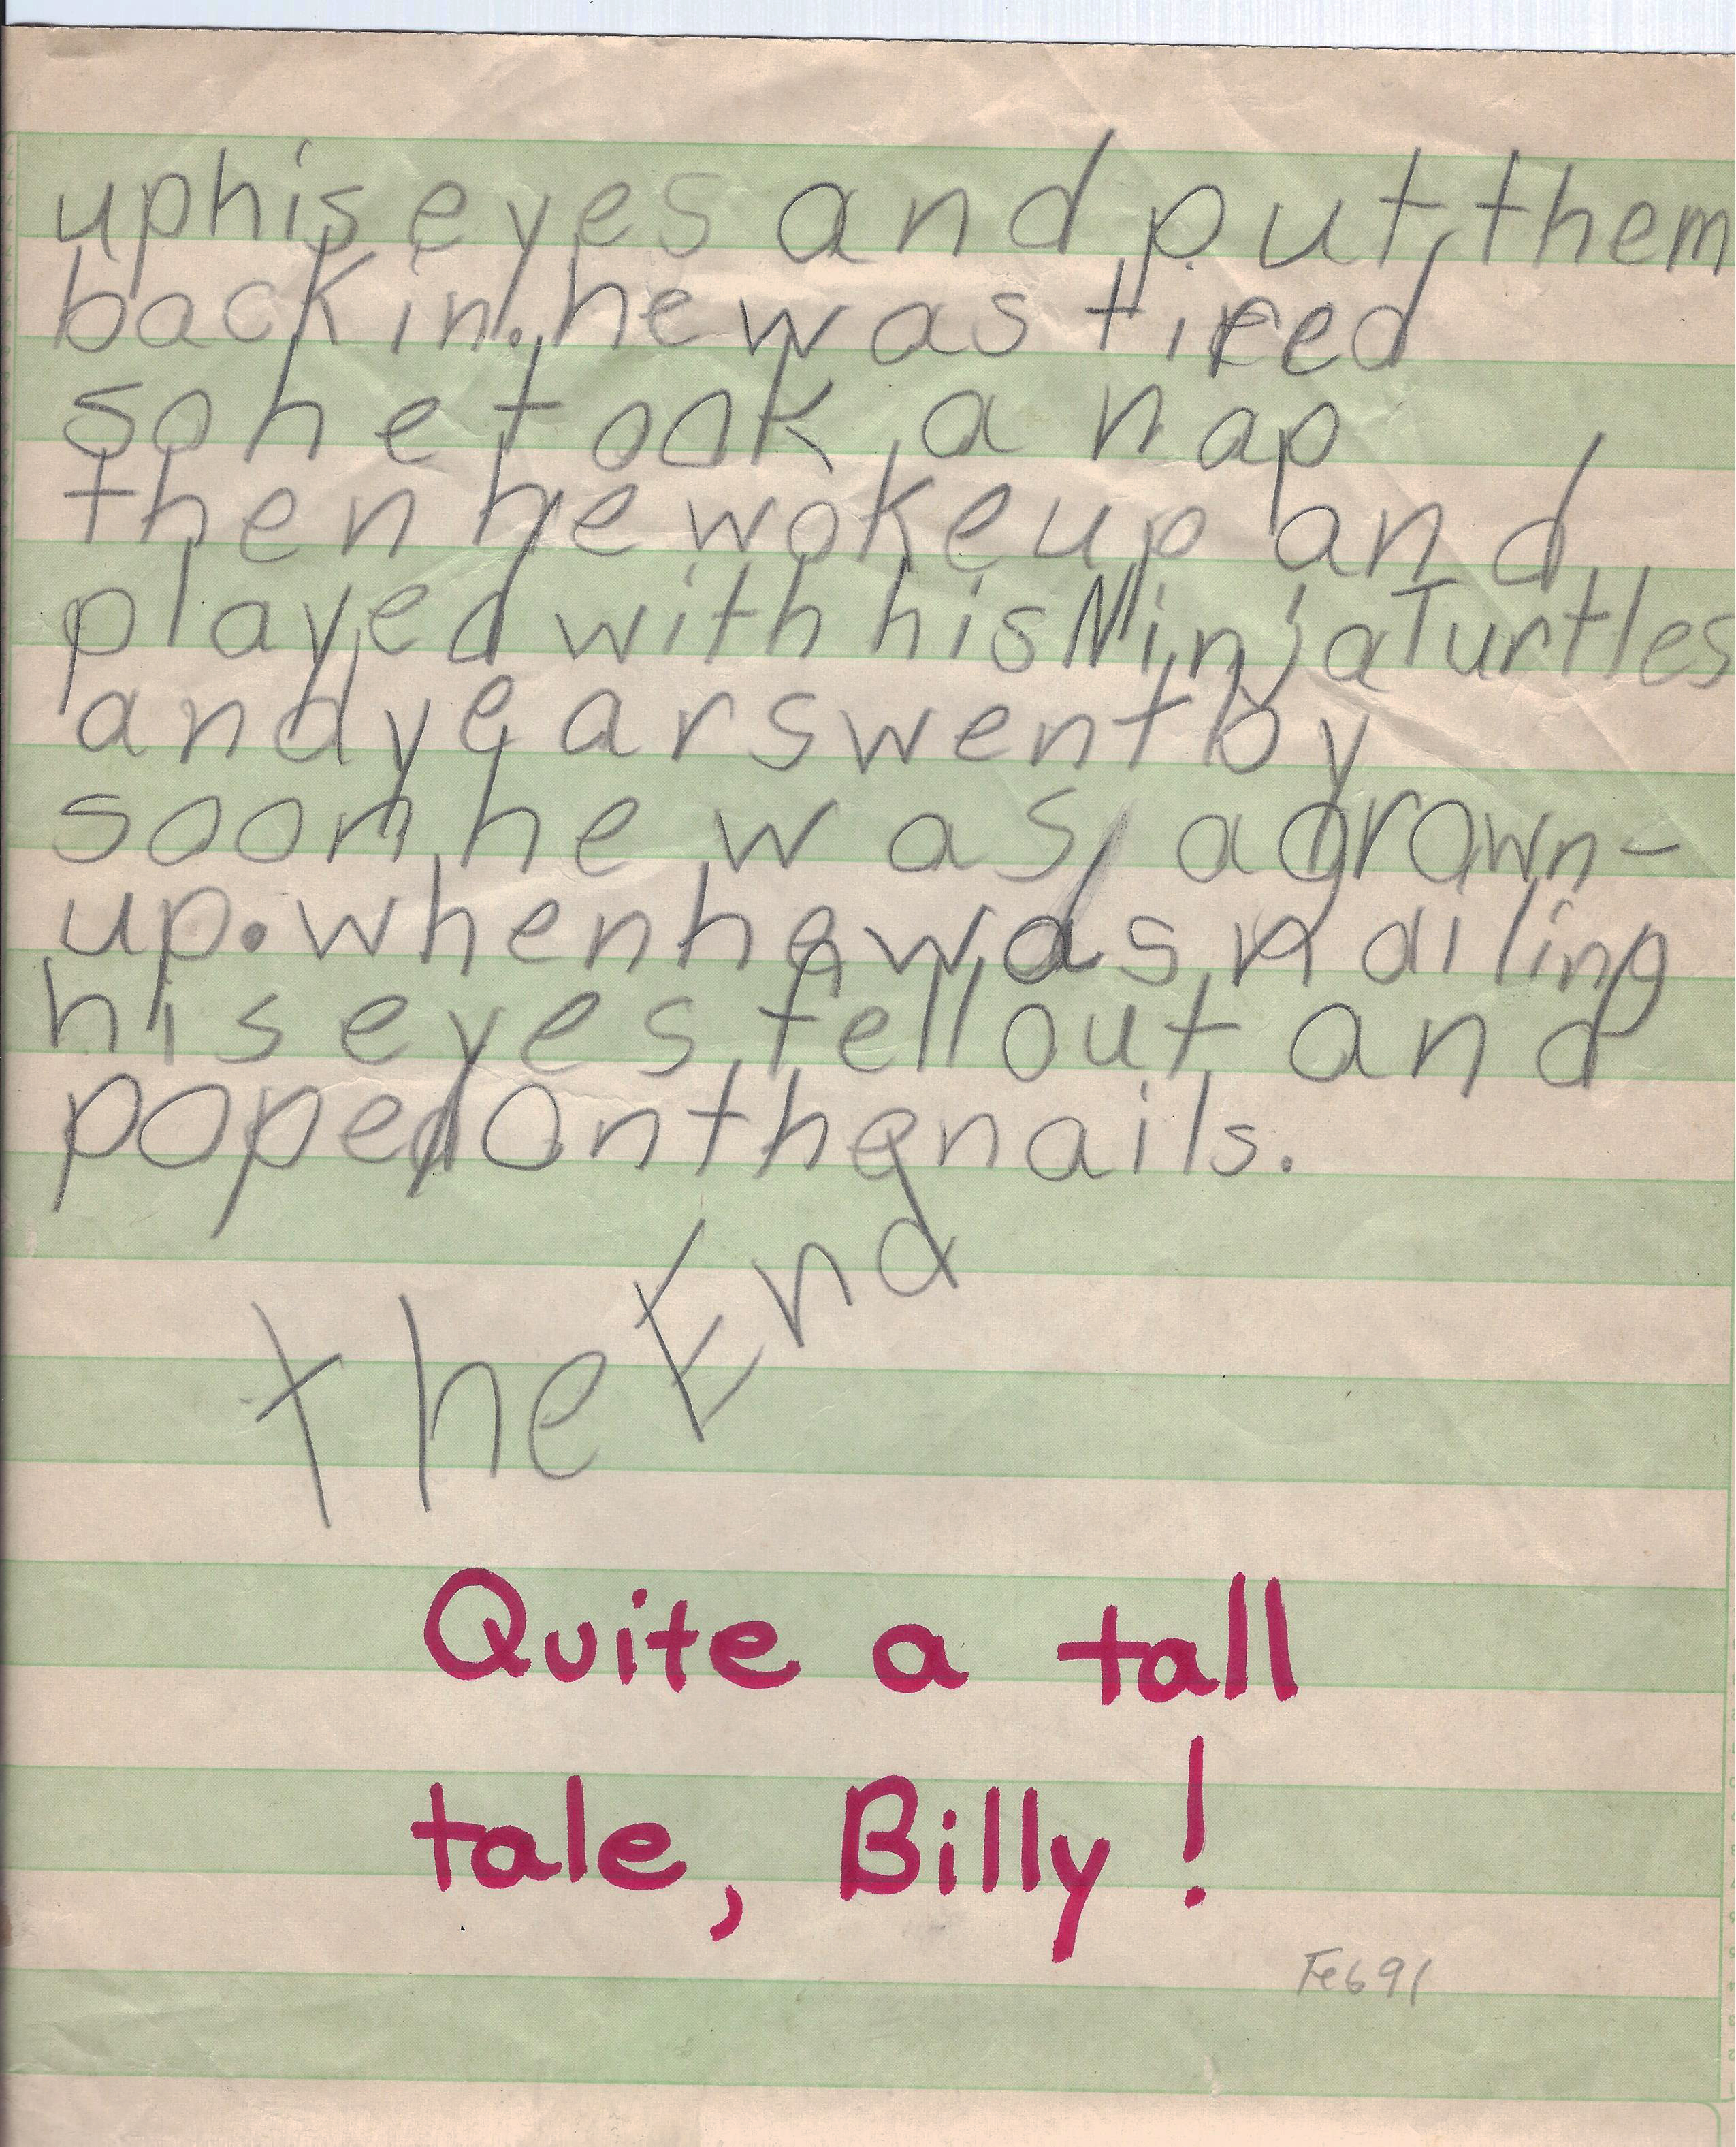 up his eyes and put them
back in. he was tired
so he took a nap
then he woke up and
played with his Ninja Turtles
and years went by
soon he was a grown-
up. when he was nailing
his eyes fell out and
poped on the nails.
the End
Quite a tall
tale, Billy!
Feb 91